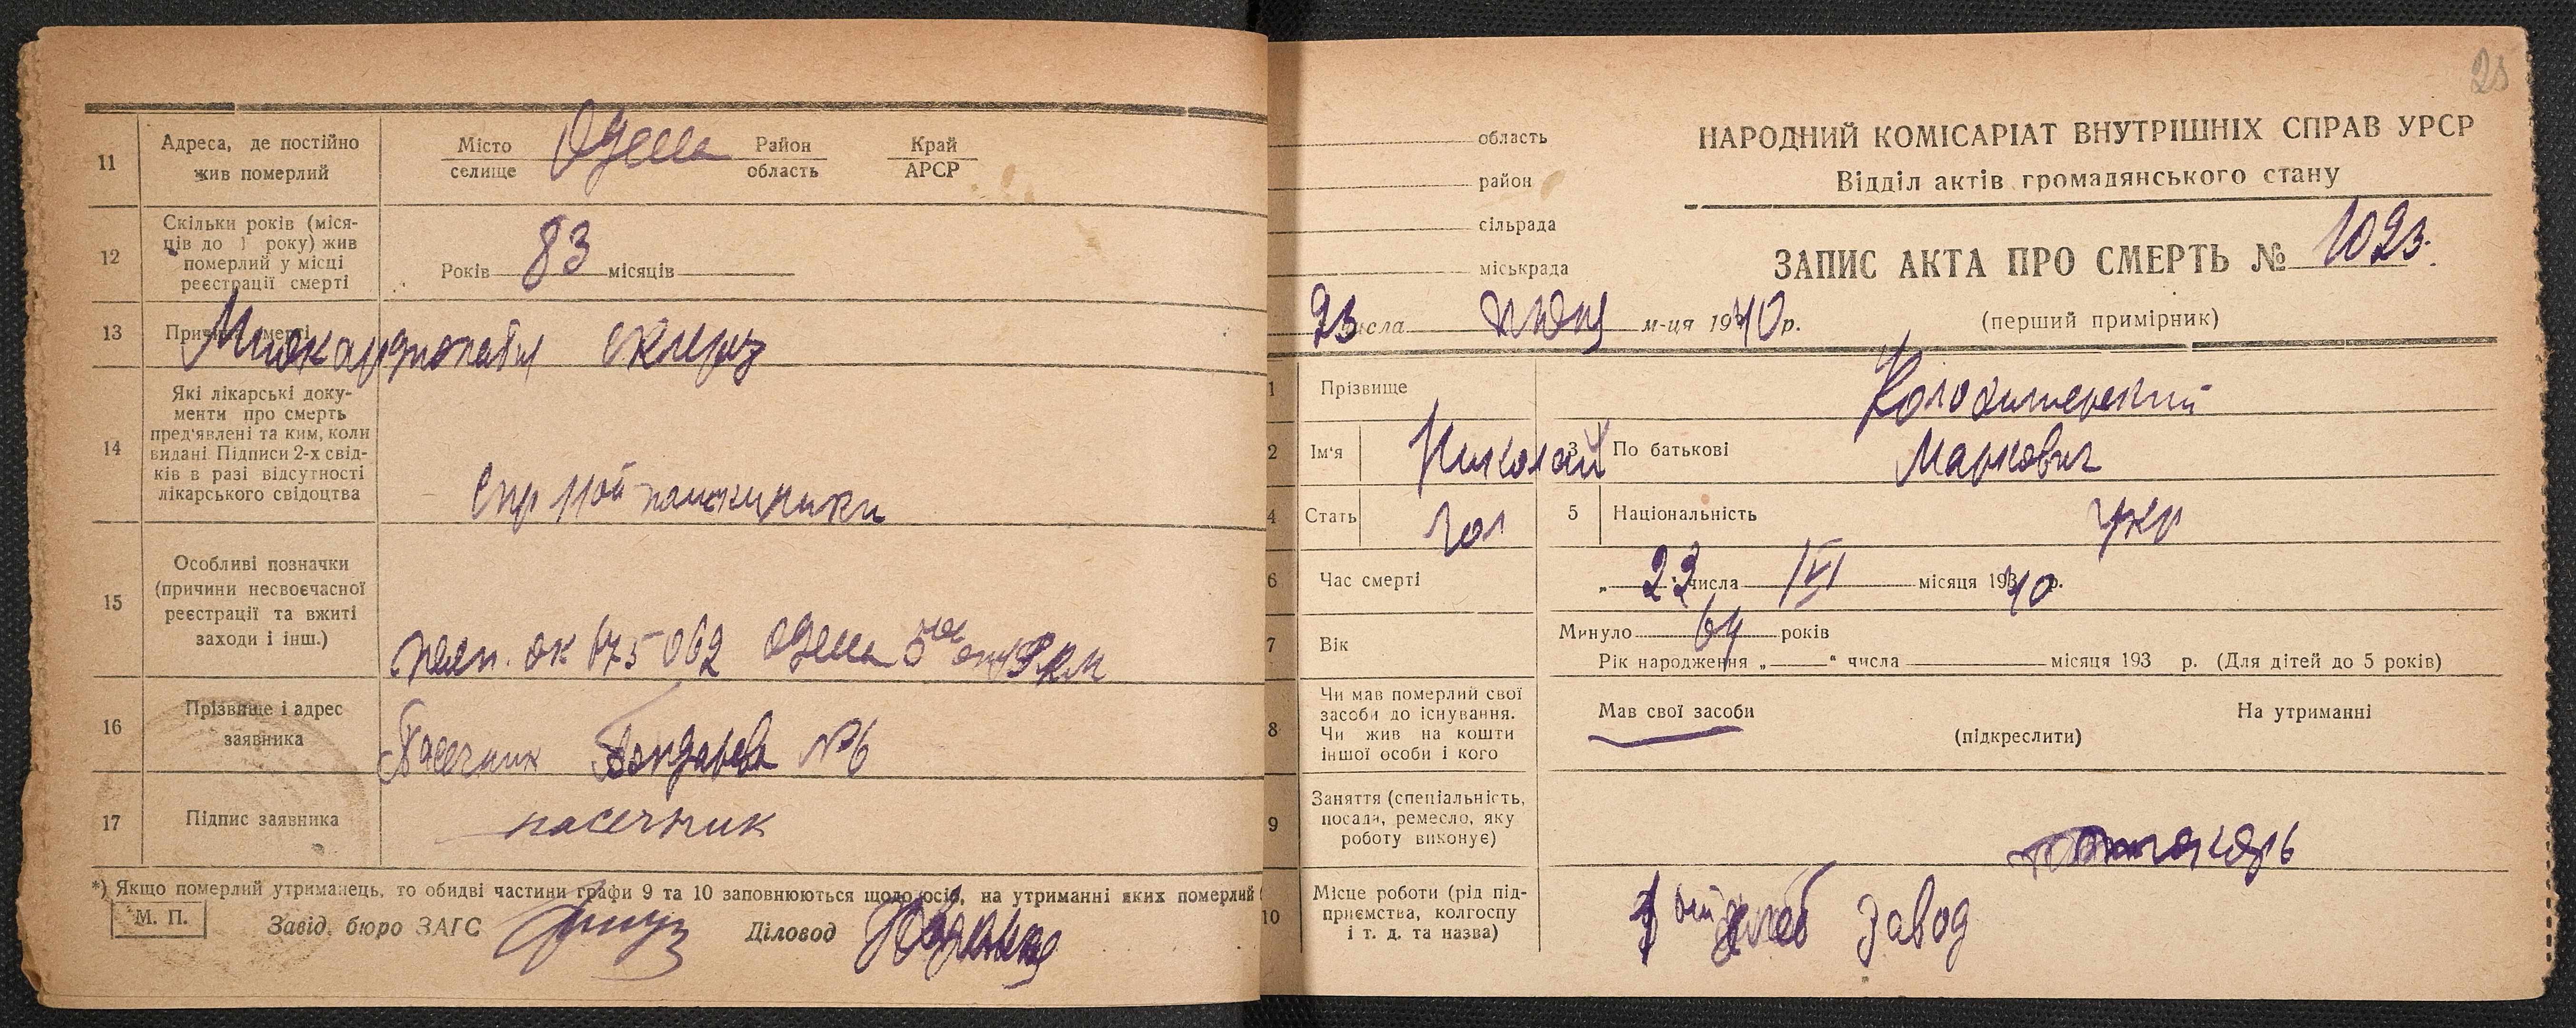 11 Адреса, де постійно жив померлий Місто селище Одесса Район область Край АРСР
12 Скільки років (місяців до 1 року) жив померлий у місці реєстрації смерті Років 83 місяців
13 Причина смерті Миокардиопатия склероз
14 Які лікарські документи про смерть пред'явлені та ким, коли видані Підписи 2-х свідків в разі відсутності лікарського свідоцтва
15 Особливі позначки (причини несвоєчасної реєстрації та вжиті заходи і інш.) 675062 Одесса 5 РКМ
16 Прізвище і адрес заявника Пасечник №6
17 Підпис заявника пасечник
*) Якщо померлий утриманець, то обидві частини графи 9 та 10 заповнюються щодо осіб, на утриманні яких померлий
М. П. Завід. бюро ЗАГС Діловод
25
область
район
сільрада
міськрада
НАРОДНИЙ КОМІСАРІАТ ВНУТРІШНІХ СПРАВ УРСР
Відділ актів громадянського стану
ЗАПИС АКТА ПРО СМЕРТЬ № 1023.
(перший примірник)
23 числа м-ця 1940 р.
1 Прізвище
2 Ім'я Николай 3 По батькові Маркович
4 Стать Чол 5 Національність Укр
6 Час смерті „ 22 числа місяця 1940 р.
7 Вік Минуло 64 років
Рік народження „ “ числа місяця 193 р. (Для дітей до 5 років)
8 Чи мав померлий свої засоби до існування. Чи жив на кошти іншої особи і кого Мав свої засоби (підкреслити) На утриманні
9 Заняття (спеціальність, посада, ремесло, яку роботу виконує)
10 Місце роботи (рід підприємства, колгоспу і т. д. та назва) хлеб завод